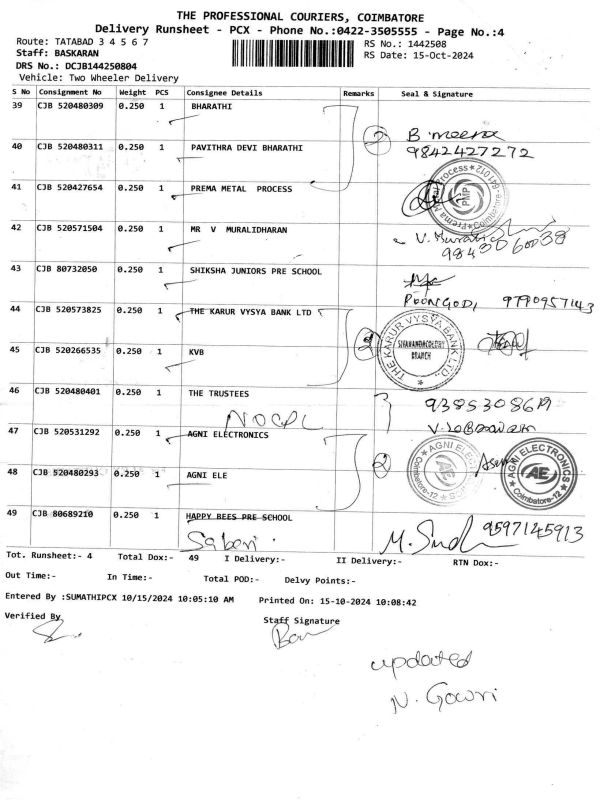 THE PROFESSIONAL COURIERS, COIMBATORE
Delivery Runsheet - PCX - Phone No.:0422-3505555 - Page No.:4
Route: TATABAD 3 4 5 6 7
RS No.: 1442508
Staff: BASKARAN
RS Date: 15-Oct-2024
DRS No.: DCJB144250804
Vehicle: Two Wheeler Delivery
S No Consignment No Weight PCS Consignee Details Remarks Seal & Signature
39 CJB 520480309 0.250 1 BHARATHI
2 B meena
40 CJB 520480311 0.250 1 PAVITHRA DEVI BHARATHI 9842427272
41 CJB 520427654 0.250 1 PREMA METAL PROCESS
Prema Metal Process Coimbatore-641012 PMP
42 CJB 520571504 0.250 1 MR V MURALIDHARAN
9843060038
43 CJB 80732050 0.250 1 SHIKSHA JUNIORS PRE SCHOOL
POONGODI 9790957143
44 CJB 520573825 0.250 1 THE KARUR VYSYA BANK LTD
2 THE KARUR VYSYA BANK LTD SIVANANDACOLONY BRANCH
45 CJB 520266535 0.250 1 KVB
46 CJB 520480401 0.250 1 THE TRUSTEES
NOCPL
47 CJB 520531292 0.250 1 AGNI ELECTRONICS
2 AGNI ELECTRONICS Coimbatore-12
AGNI ELECTRONICS AE Coimbatore-12
48 CJB 520480293 0.250 1 AGNI ELE
49 CJB 80689210 0.250 1 HAPPY BEES PRE SCHOOL
Sabari M. Sudh 9597145913
Tot. Runsheet:- 4 Total Dox:- 49 I Delivery:- II Delivery:- RTN Dox:-
Out Time:- In Time:- Total POD:- Delvy Points:-
Entered By :SUMATHIPCX 10/15/2024 10:05:10 AM Printed On: 15-10-2024 10:08:42
Verified By Staff Signature
updated
N. Gowri